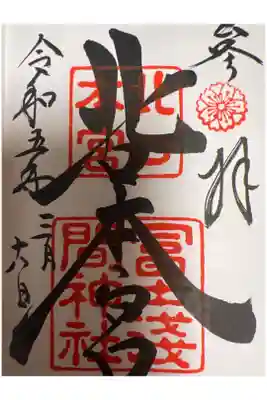 參拝
北口本宮
北口本宮
冨士淺間神社
令和五年三月六日